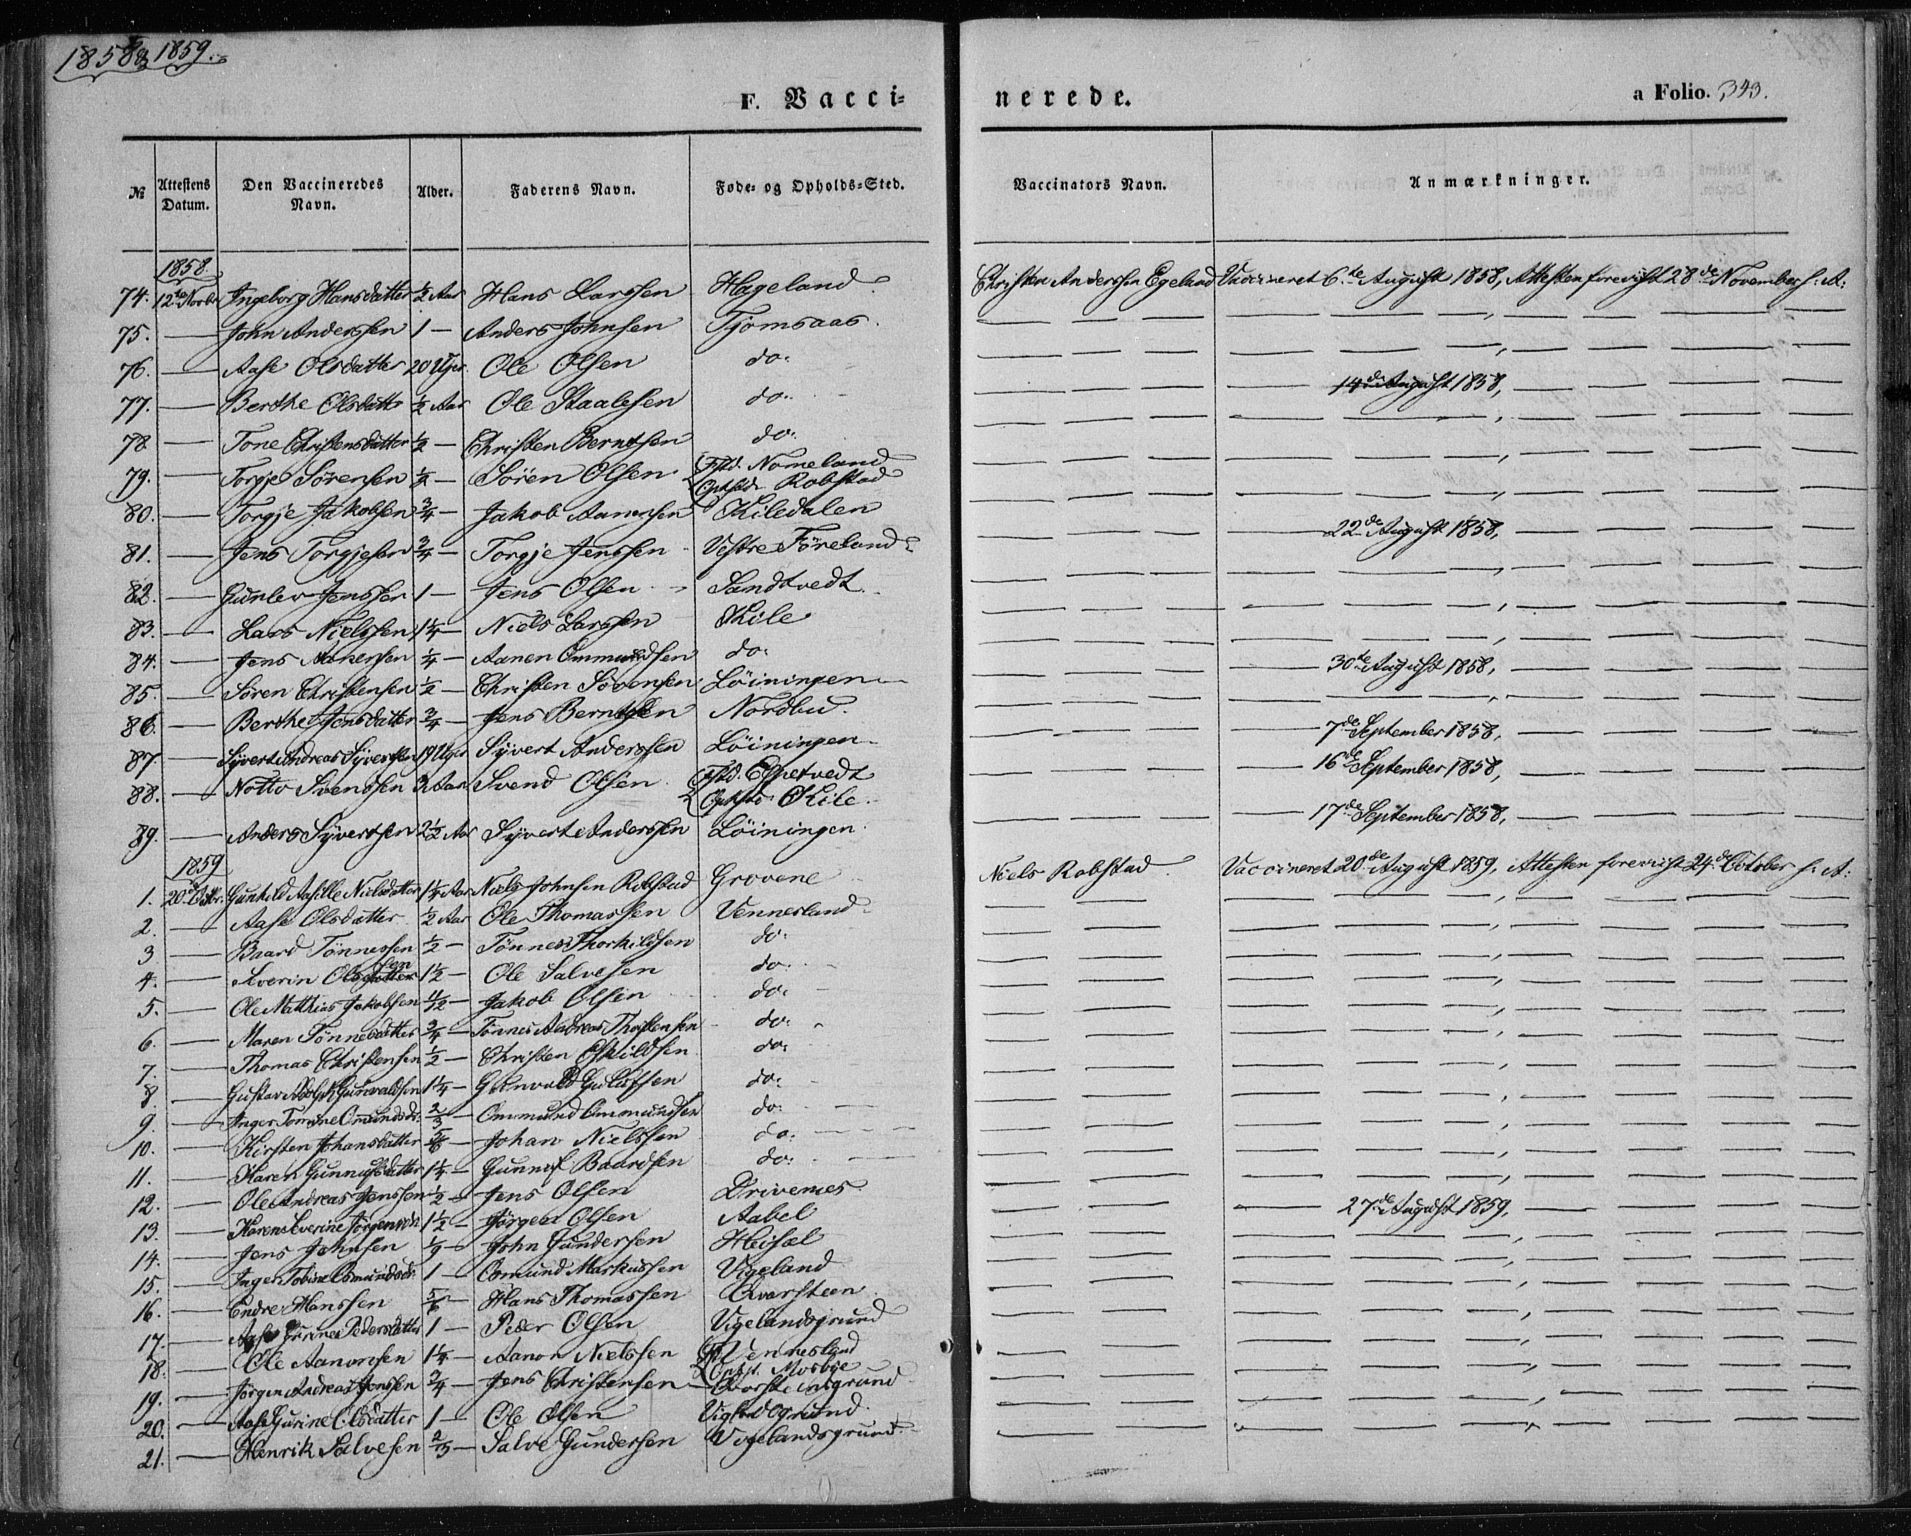 1858 & 1859.
F. Vacci=
nerede.
a Folio. 343.
№ Attestens Datum. Den Vaccineredes Navn. Alder. Faderens Navn. Føde- og Opholds-Sted. Vaccinators Navn. Anmærkninger.
1858.
74. 12te Novbr Ingeborg Hansdatter ½ Aar Hans Larssen Hageland Christen Anderssen Egeland Vaccineret 6te August 1858, Attesten forevist 28de November s. A:
75. — John Anderssen 1 — Anders Johnsen Tjomsaas — — — — — — , — — — —
76. — Aase Olsdatter 20 Uger Ole Olsen do: — — — — — — , — — — —
77. — Berthe Olsdatter ½ Aar Ole Staalesen do. — — — — 14de August 1858, — — — —
78. — Tone Christensdatter ½ — Christen Berntsen do: — — — — — — , — — — —
79. — Torgje Sörensen ¼ — Sören Olsen Fstd. Nomeland — — — — — — , — — — —
Opstd. Robstad
80. — Torgje Jakobsen ¾ — Jakob Aanensen Kiledalen — — — — — — , — — — —
81. — Jens Torgjesen ¾ — Torgje Jenssen Vestre Föreland — — — — 22de August 1858, — — — —
82. — Gunlev Jenssen 1 — Jens Olsen Sandtvedt — — — — — — , — — — —
83. — Lars Nielssen 1¼ — Niels Larssen Kile — — — — — — , — — — —
84. — Jens Aanensen ¼ — Aanen Ommundsen do: — — — — — — , — — — —
85. — Sören Christensen ½ — Christen Sörensen Löiningen — — — — 30te August 1858, — — — —
86. — Berthe Jensdatter ¾ — Jens Berntsen Nordbu. — — — — — — , — — — —
87. — Syvert Andreas Syvertsen 19 Uger Syvert Anderssen Löiningen — — — — 7de September 1858, — — — —
88. — Notto Svenssen Aar Svend Olsen Fstd. Espetvedt — — — — 16de September 1858, — — — —
Opstd Kile.
89. — Anders Syvertsen 2½ Aar Syvert Anderssen Löiningen. — — — — 17de September 1858, — — — —
1859
1. 20de Octbr. Gunhild Aasille Nielsdatter 1¼ Aar Niels Johnsen Robstad Grovene Niels Robstad. Vaccineret 20de August 1859, Attesten forevist 24de October s. A:
2. — Aase Olsdatter ½ Aar Ole Thomassen Vennesland — — — — — — , — — — —
3 — Baard Tönnessen ½ — Tönnes Thorkildsen do: — — — — — — , — — — —
4. — Severin Olssen 1½ — Ole Salvesen do: — — — — — — , — — — —
5. — Ole Mathias Jakobsen — Jakob Olsen do: — — — — — — , — — — —
6. — Maren Tönnesdatter ¾ — Tönnes Andreas Thorstensen do: — — — — — — , — — — —
7. — Thomas Christensen ½ — Christen Eskildsen do: — — — — — — , — — — —
8 — Gustav Adolph Gunvaldsen 1¼ — Gunvald Gustafsen do: — — — — — — , — — — —
9. — Inger Tomine Omundsdr. ⅔ — Ommund Ommundsen do: — — — — — — , — — — —
10. — Kirsten Johansdatter ⅚ — Johan Nielssen do: — — — — — — , — — — —
11. — Karen Gunnufsdatter 1¼ — Gunnuf Baardsen do: — — — — — — , — — — —
12. — Ole Andreas Jenssen ½ — Jens Olsen Drivenes — — — — — — , — — — —
13. — Karen Severine Jörgensdr 1½ — Jörgen Olsen Aabel — — — — 27de August 1859, — — — —
14. — Jens Johnsen — John Gundersen Heisel — — — — — — , — — — —
15. — Inger Tobine Osmundsdr. 1 — Osmund Markussen Vigeland — — — — — — , — — — —
16. — Endre Hanssen ⅚ — Hans Thomassen Qvarsteen — — — — — — , — — — —
17. — Aase Pedersdatter 1 — Peder Olsen Vigelandsgrund — — — — — — , — — — —
18. — Ole Aanonsen 1¼ — Aanon Nielssen Vennesland — — — — — — , — — — —
Opst. Mosbye
19. — Jörgen Andreas Jenssen ¾ — Jens Christensen Qvarsteinsgrund — — — — — — , — — — —
20. — Aase Gurine Olsdatter 1 — Ole Olsen Viglandsgrund. — — — — — — , — — — —
21. — Henrik Salvesen ⅔ — Salve Gundersen Vigelandsgrund — — — — — — , — — — —